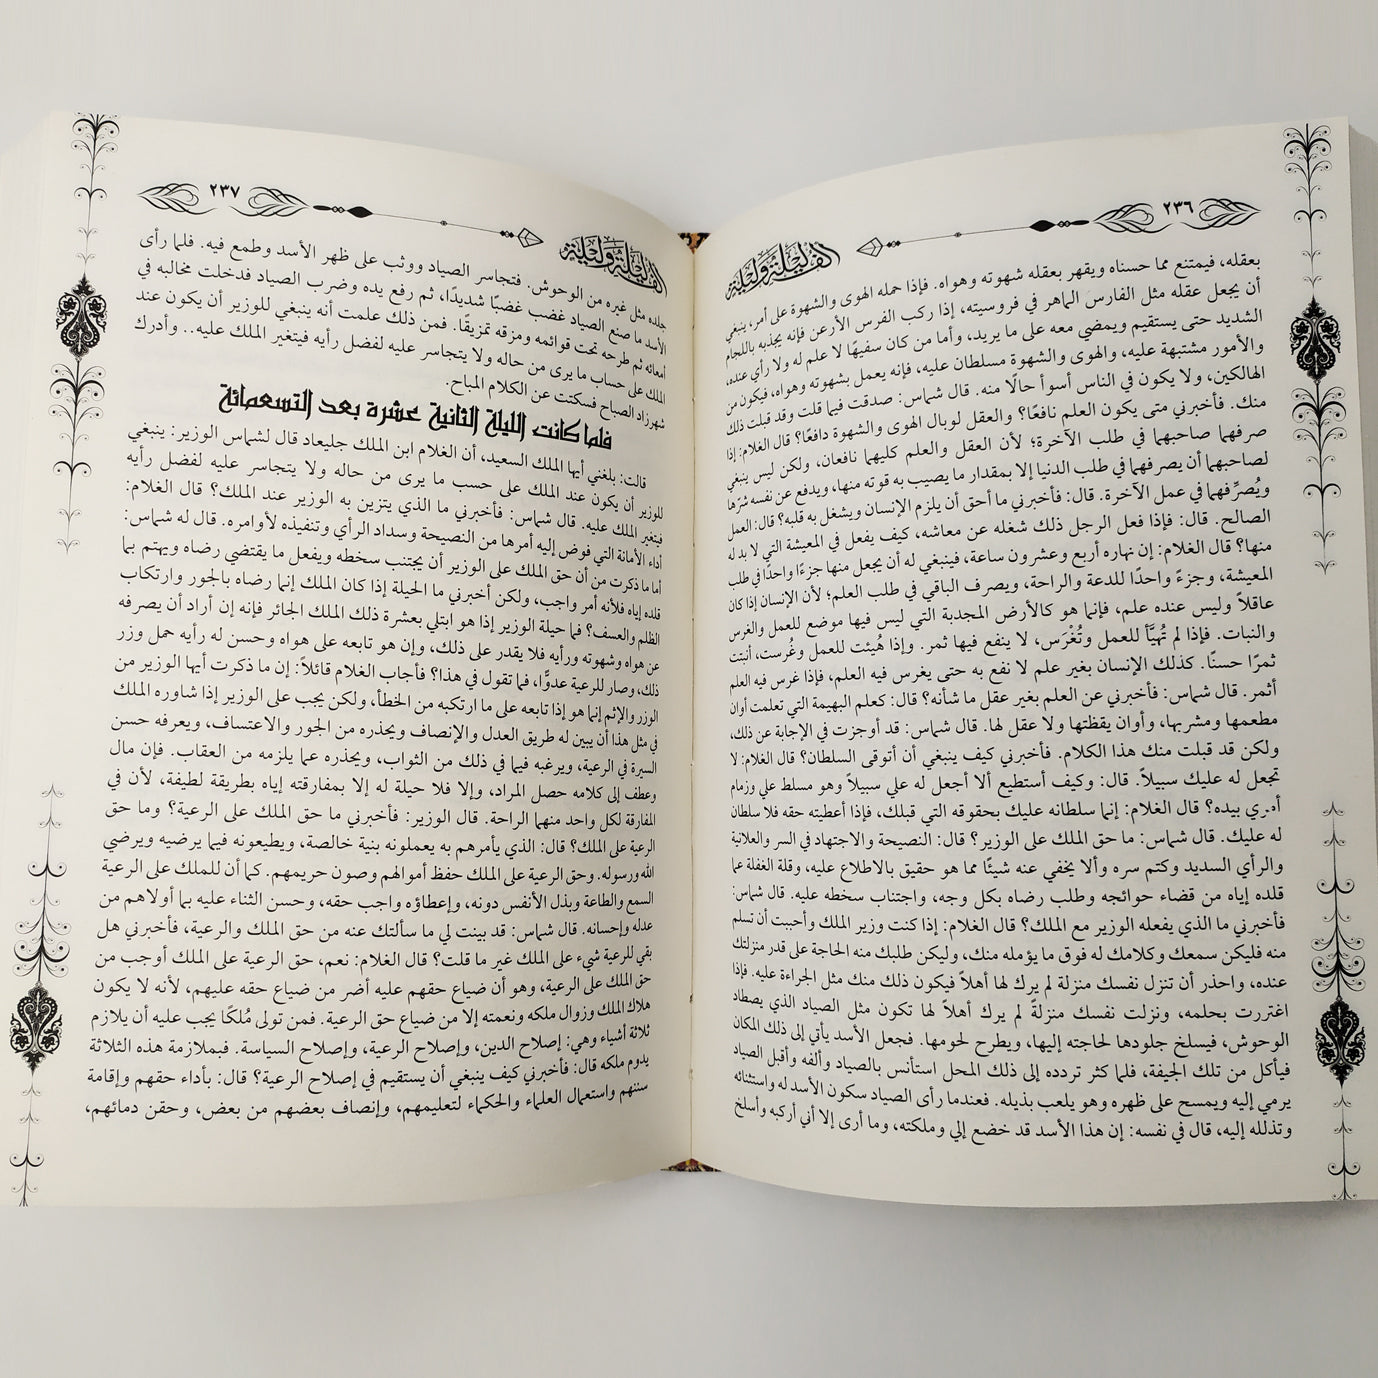 ٢٣٦
ألف ليلة وليلة
بعقله، فيمتنع مما حسناه ويقهر بعقله شهوته وهواه. فإذا حمله الهوى والشهوة على أمر، ينبغي
أن يجعل عقله مثل الفارس الماهر في فروسيته، إذا ركب الفرس الأرعن فإنه يجذبه باللجام
الشديد حتى يستقيم ويمضي معه على ما يريد، وأما من كان سفيهًا لا علم له ولا رأي عنده،
والأمور مشتبهة عليه، والهوى والشهوة مسلطان عليه، فإنه يعمل بشهوته وهواه، فيكون من
الهالكين، ولا يكون في الناس أسوأ حالًا منه. قال شماس: صدقت فيما قلت وقد قبلت ذلك
منك. فأخبرني متى يكون العلم نافعًا؟ والعقل لوبال الهوى والشهوة دافعًا؟ قال الغلام: إذا
صرفهما صاحبهما في طلب الآخرة؛ لأن العقل والعلم كليهما نافعان، ولكن ليس ينبغي
لصاحبهما أن يصرفهما في طلب الدنيا إلا بمقدار ما يصيب به قوته منها، ويدفع عن نفسه شرّها
ويُصرِّفهما في عمل الآخرة. قال: فأخبرني ما أحق أن يلزم الإنسان ويشغل به قلبه؟ قال: العمل
الصالح. قال: فإذا فعل الرجل ذلك شغله عن معاشه، كيف يفعل في المعيشة التي لا بد له
منها؟ قال الغلام: إن نهاره أربع وعشرون ساعة، فينبغي له أن يجعل منها جزءًا واحدًا في طلب
المعيشة، وجزءً واحدًا للدعة والراحة، ويصرف الباقي في طلب العلم؛ لأن الإنسان إذا كان
عاقلاً وليس عنده علم، فإنما هو كالأرض المجدبة التي ليس فيها موضع للعمل والغرس
والنبات. فإذا لم تُهيَّأ للعمل وتُغْرَس، لا ينفع فيها ثمر. وإذا هُيئت للعمل وغُرست، أنبتت
ثمرًا حسنًا. كذلك الإنسان بغير علم لا نفع به حتى يغرس فيه العلم، فإذا غرس فيه العلم
أثمر. قال شماس: فأخبرني عن العلم بغير عقل ما شأنه؟ قال: كعلم البهيمة التي تعلمت أوان
مطعمها ومشربها، وأوان يقظتها ولا عقل لها. قال شماس: قد أوجزت في الإجابة عن ذلك،
ولكن قد قبلت منك هذا الكلام. فأخبرني كيف ينبغي أن أتوقى السلطان؟ قال الغلام: لا
تجعل له عليك سبيلاً. قال: وكيف أستطيع ألا أجعل له علي سبيلاً وهو مسلط علي وزمام
أمري بيده؟ قال الغلام: إنما سلطانه عليك بحقوقه التي قبلك، فإذا أعطيته حقه فلا سلطان
له عليك. قال شماس: ما حق الملك على الوزير؟ قال: النصيحة والاجتهاد في السر والعلانية
والرأي السديد وكتم سره وألا يخفي عنه شيئًا مما هو حقيق بالاطلاع عليه، وقلة الغفلة عما
قلده إياه من قضاء حوائجه وطلب رضاه بكل وجه، واجتناب سخطه عليه. قال شماس:
فأخبرني ما الذي يفعله الوزير مع الملك؟ قال الغلام: إذا كنت وزير الملك وأحببت أن تسلم
منه فليكن سمعك وكلامك له فوق ما يؤمله منك، وليكن طلبك منه الحاجة على قدر منزلتك
عنده، واحذر أن تنزل نفسك منزلة لم يرك لها أهلاً فيكون ذلك منك مثل الجراءة عليه. فإذا
اغتررت بحلمه، ونزلت نفسك منزلةً لم يرك أهلاً لها تكون مثل الصياد الذي يصطاد
الوحوش، فيسلخ جلودها لحاجته إليها، ويطرح لحومها. فجعل الأسد يأتي إلى ذلك المكان
فيأكل من تلك الجيفة، فلما كثر تردده إلى ذلك المحل استأنس بالصياد وألفه وأقبل الصياد
يرمي إليه ويمسح على ظهره وهو يلعب بذيله. فعندما رأى الصياد سكون الأسد له واستئنائه
وتذلله إليه، قال في نفسه: إن هذا الأسد قد خضع إلي وملكته، وما أرى إلا أني أركبه وأسلخ
٢٣٧
ألف ليلة وليلة
جلده مثل غيره من الوحوش. فتجاسر الصياد ووثب على ظهر الأسد وطمع فيه. فلما رأى
الأسد ما صنع الصياد غضب غضبًا شديدًا، ثم رفع يده وضرب الصياد فدخلت مخالبه في
أمعائه ثم طرحه تحت قوائمه ومزقه تمزيقًا. فمن ذلك علمت أنه ينبغي للوزير أن يكون عند
الملك على حساب ما يرى من حاله ولا يتجاسر عليه لفضل رأيه فيتغير الملك عليه.. وأدرك
شهرزاد الصباح فسكتت عن الكلام المباح.
فلما كانت الليلة الثانية عشرة بعد التسعمائة
قالت: بلغني أيها الملك السعيد، أن الغلام ابن الملك جليعاد قال لشماس الوزير: ينبغي
للوزير أن يكون عند الملك على حسب ما يرى من حاله ولا يتجاسر عليه لفضل رأيه
فيتغير الملك عليه. قال شماس: فأخبرني ما الذي يتزين به الوزير عند الملك؟ قال الغلام:
أداء الأمانة التي فوض إليه أمرها من النصيحة وسداد الرأي وتنفيذه لأوامره. قال له شماس:
أما ما ذكرت من أن حق الملك على الوزير أن يجتنب سخطه ويفعل ما يقتضي رضاه ويهتم بما
قلده إياه فلأنه أمر واجب، ولكن أخبرني ما الحيلة إذا كان الملك إنما رضاه بالجور وارتكاب
الظلم والعسف؟ فما حيلة الوزير إذا هو ابتلي بعشرة ذلك الملك الجائر فإنه إن أراد أن يصرفه
عن هواه وشهوته ورأيه فلا يقدر على ذلك، وإن هو تابعه على هواه وحسن له رأيه حمل وزر
ذلك، وصار للرعية عدوًّا، فما تقول في هذا؟ فأجاب الغلام قائلاً: إن ما ذكرت أيها الوزير من
الوزر والإثم إنما هو إذا تابعه على ما ارتكبه من الخطأ، ولكن يجب على الوزير إذا شاوره الملك
في مثل هذا أن يبين له طريق العدل والإنصاف ويحذره من الجور والاعتساف، ويعرفه حسن
السيرة في الرعية، ويرغبه فيما في ذلك من الثواب، ويحذره عما يلزمه من العقاب. فإن مال
وعطف إلى كلامه حصل المراد، وإلا فلا حيلة له إلا بمفارقته إياه بطريقة لطيفة، لأن في
المفارقة لكل واحد منهما الراحة. قال الوزير: فأخبرني ما حق الملك على الرعية؟ وما حق
الرعية على الملك؟ قال: الذي يأمرهم به يعملونه بنية خالصة، ويطيعونه فيما يرضيه ويرضي
الله ورسوله. وحق الرعية على الملك حفظ أموالهم وصون حريمهم. كما أن للملك على الرعية
السمع والطاعة وبذل الأنفس دونه، وإعطاؤه واجب حقه، وحسن الثناء عليه بما أولاهم من
عدله وإحسانه. قال شماس: قد بينت لي ما سألتك عنه من حق الملك والرعية، فأخبرني هل
بقي للرعية شيء على الملك غير ما قلت؟ قال الغلام: نعم، حق الرعية على الملك أوجب من
حق الملك على الرعية، وهو أن ضياع حقهم عليه أضر من ضياع حقه عليهم، لأنه لا يكون
هلاك الملك وزوال ملكه ونعمته إلا من ضياع حق الرعية. فمن تولى مُلكًا يجب عليه أن يلازم
ثلاثة أشياء وهي: إصلاح الدين، وإصلاح الرعية، وإصلاح السياسة. فبملازمة هذه الثلاثة
يدوم ملكه قال: فأخبرني كيف ينبغي أن يستقيم في إصلاح الرعية؟ قال: بأداء حقهم وإقامة
سننهم واستعمال العلماء والحكماء لتعليمهم، وإنصاف بعضهم من بعض، وحقن دمائهم،